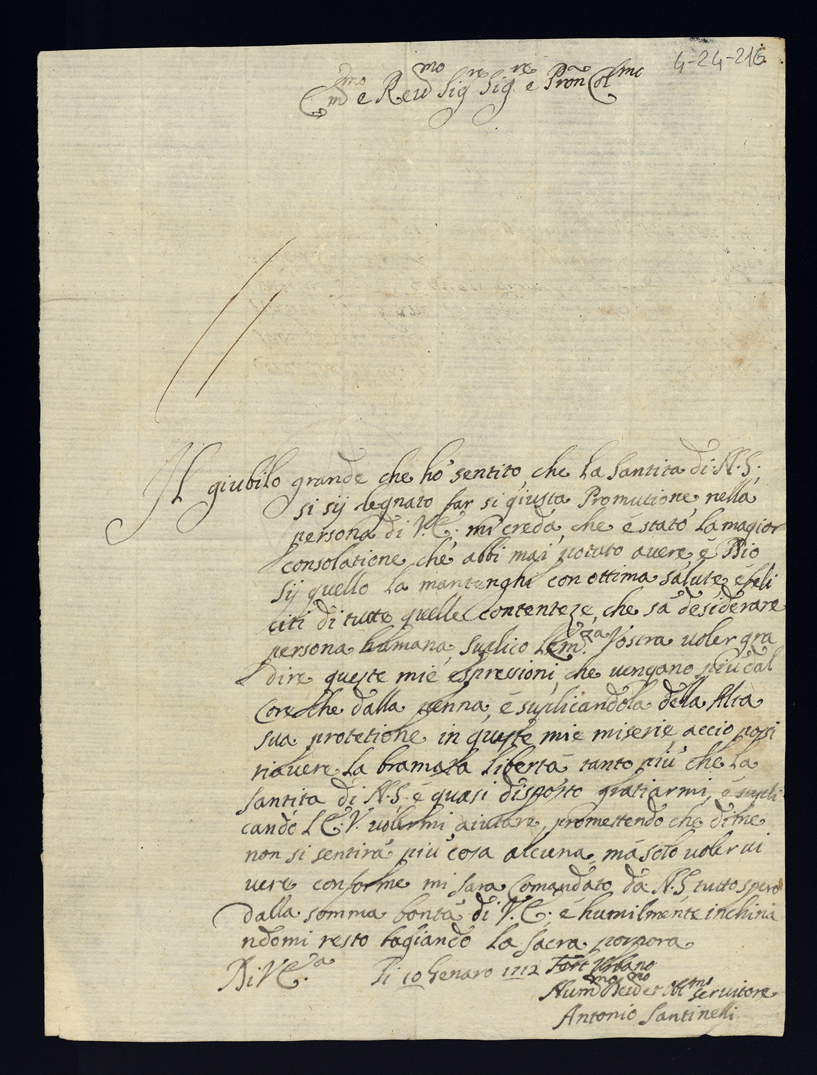 4-24-216
Em^mo e Reu^mo Sig^re Sig^re e Pron Col^mo
Il giubilo grande che hò sentito che La Santita di N.S.
si sij degnato far si giusta Promutione nella
persona di V.E. mi creda che é stato La magior
consolatione che abbi mai potuto auere é Dio
sij quello La mantenghi con ottima salute é feli
citi di tutte quelle contenteze che sà desiderare
persona humana, suplico L'Em^za Vostra uoler gra
dire queste mie espressioni che uengano più dal
Core che dalla penna é suplicandola della Alta
sua protetione in queste mie miserie accio possi
riauere La bramata libertà tanto più che La
Santita di N.S. é quasi disposto gratiarmi, é supli
cando L'E.V. uolermi aiutare, promettendo che di me
non si sentirà più cosa alcuna, mà solo uoler ui
uere conforme mi sara Comandato da N.S tutto spero
dalla somma bontà di V.E. é humilmente inchina
ndomi resto bagiando La sacra porpora
Di V.E.^za Li 10 Genaro 1712 Fort Urbano
Hum^mo Deu^mo et Ob^mo seruitore
Antonio Santinelli